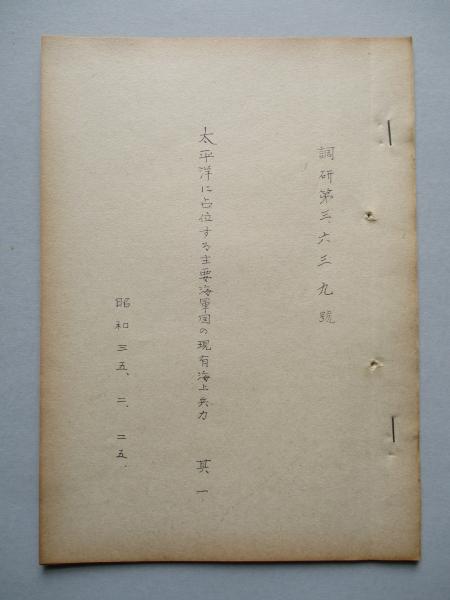 調研第三、六三九號
太平洋に占位する主要海軍国の現有海上兵力 其一
昭和三五、二、二五、